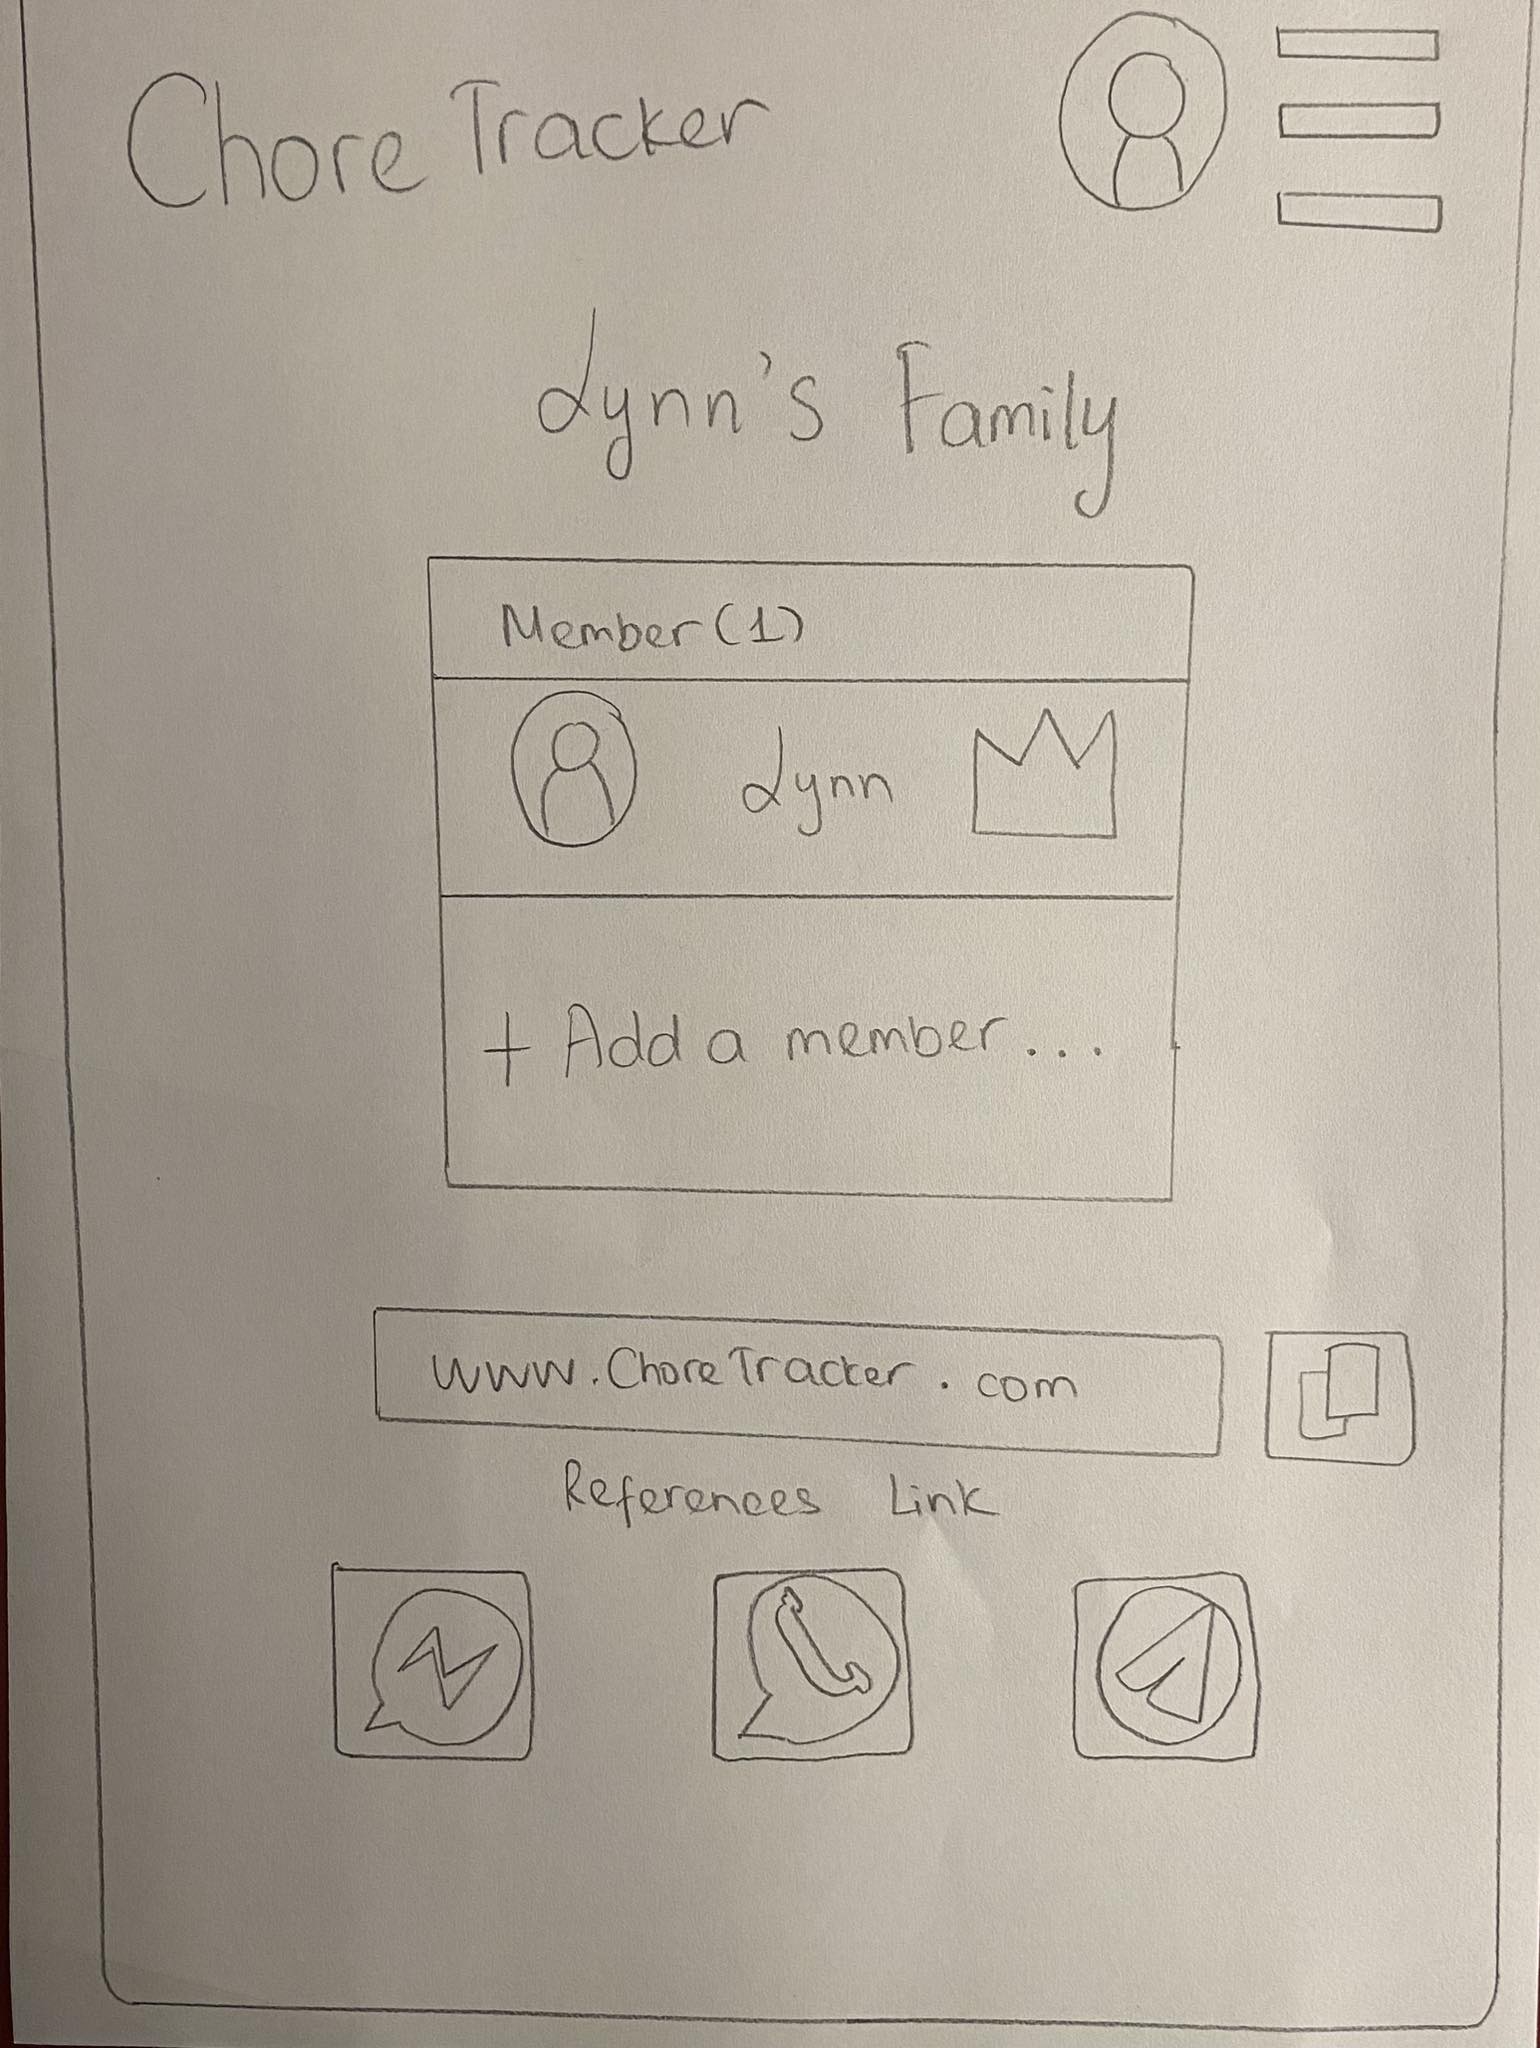 Chore Tracker
Lynn's Family
Member (1)
Lynn
+ Add a member...
www.ChoreTracker.com
References Link